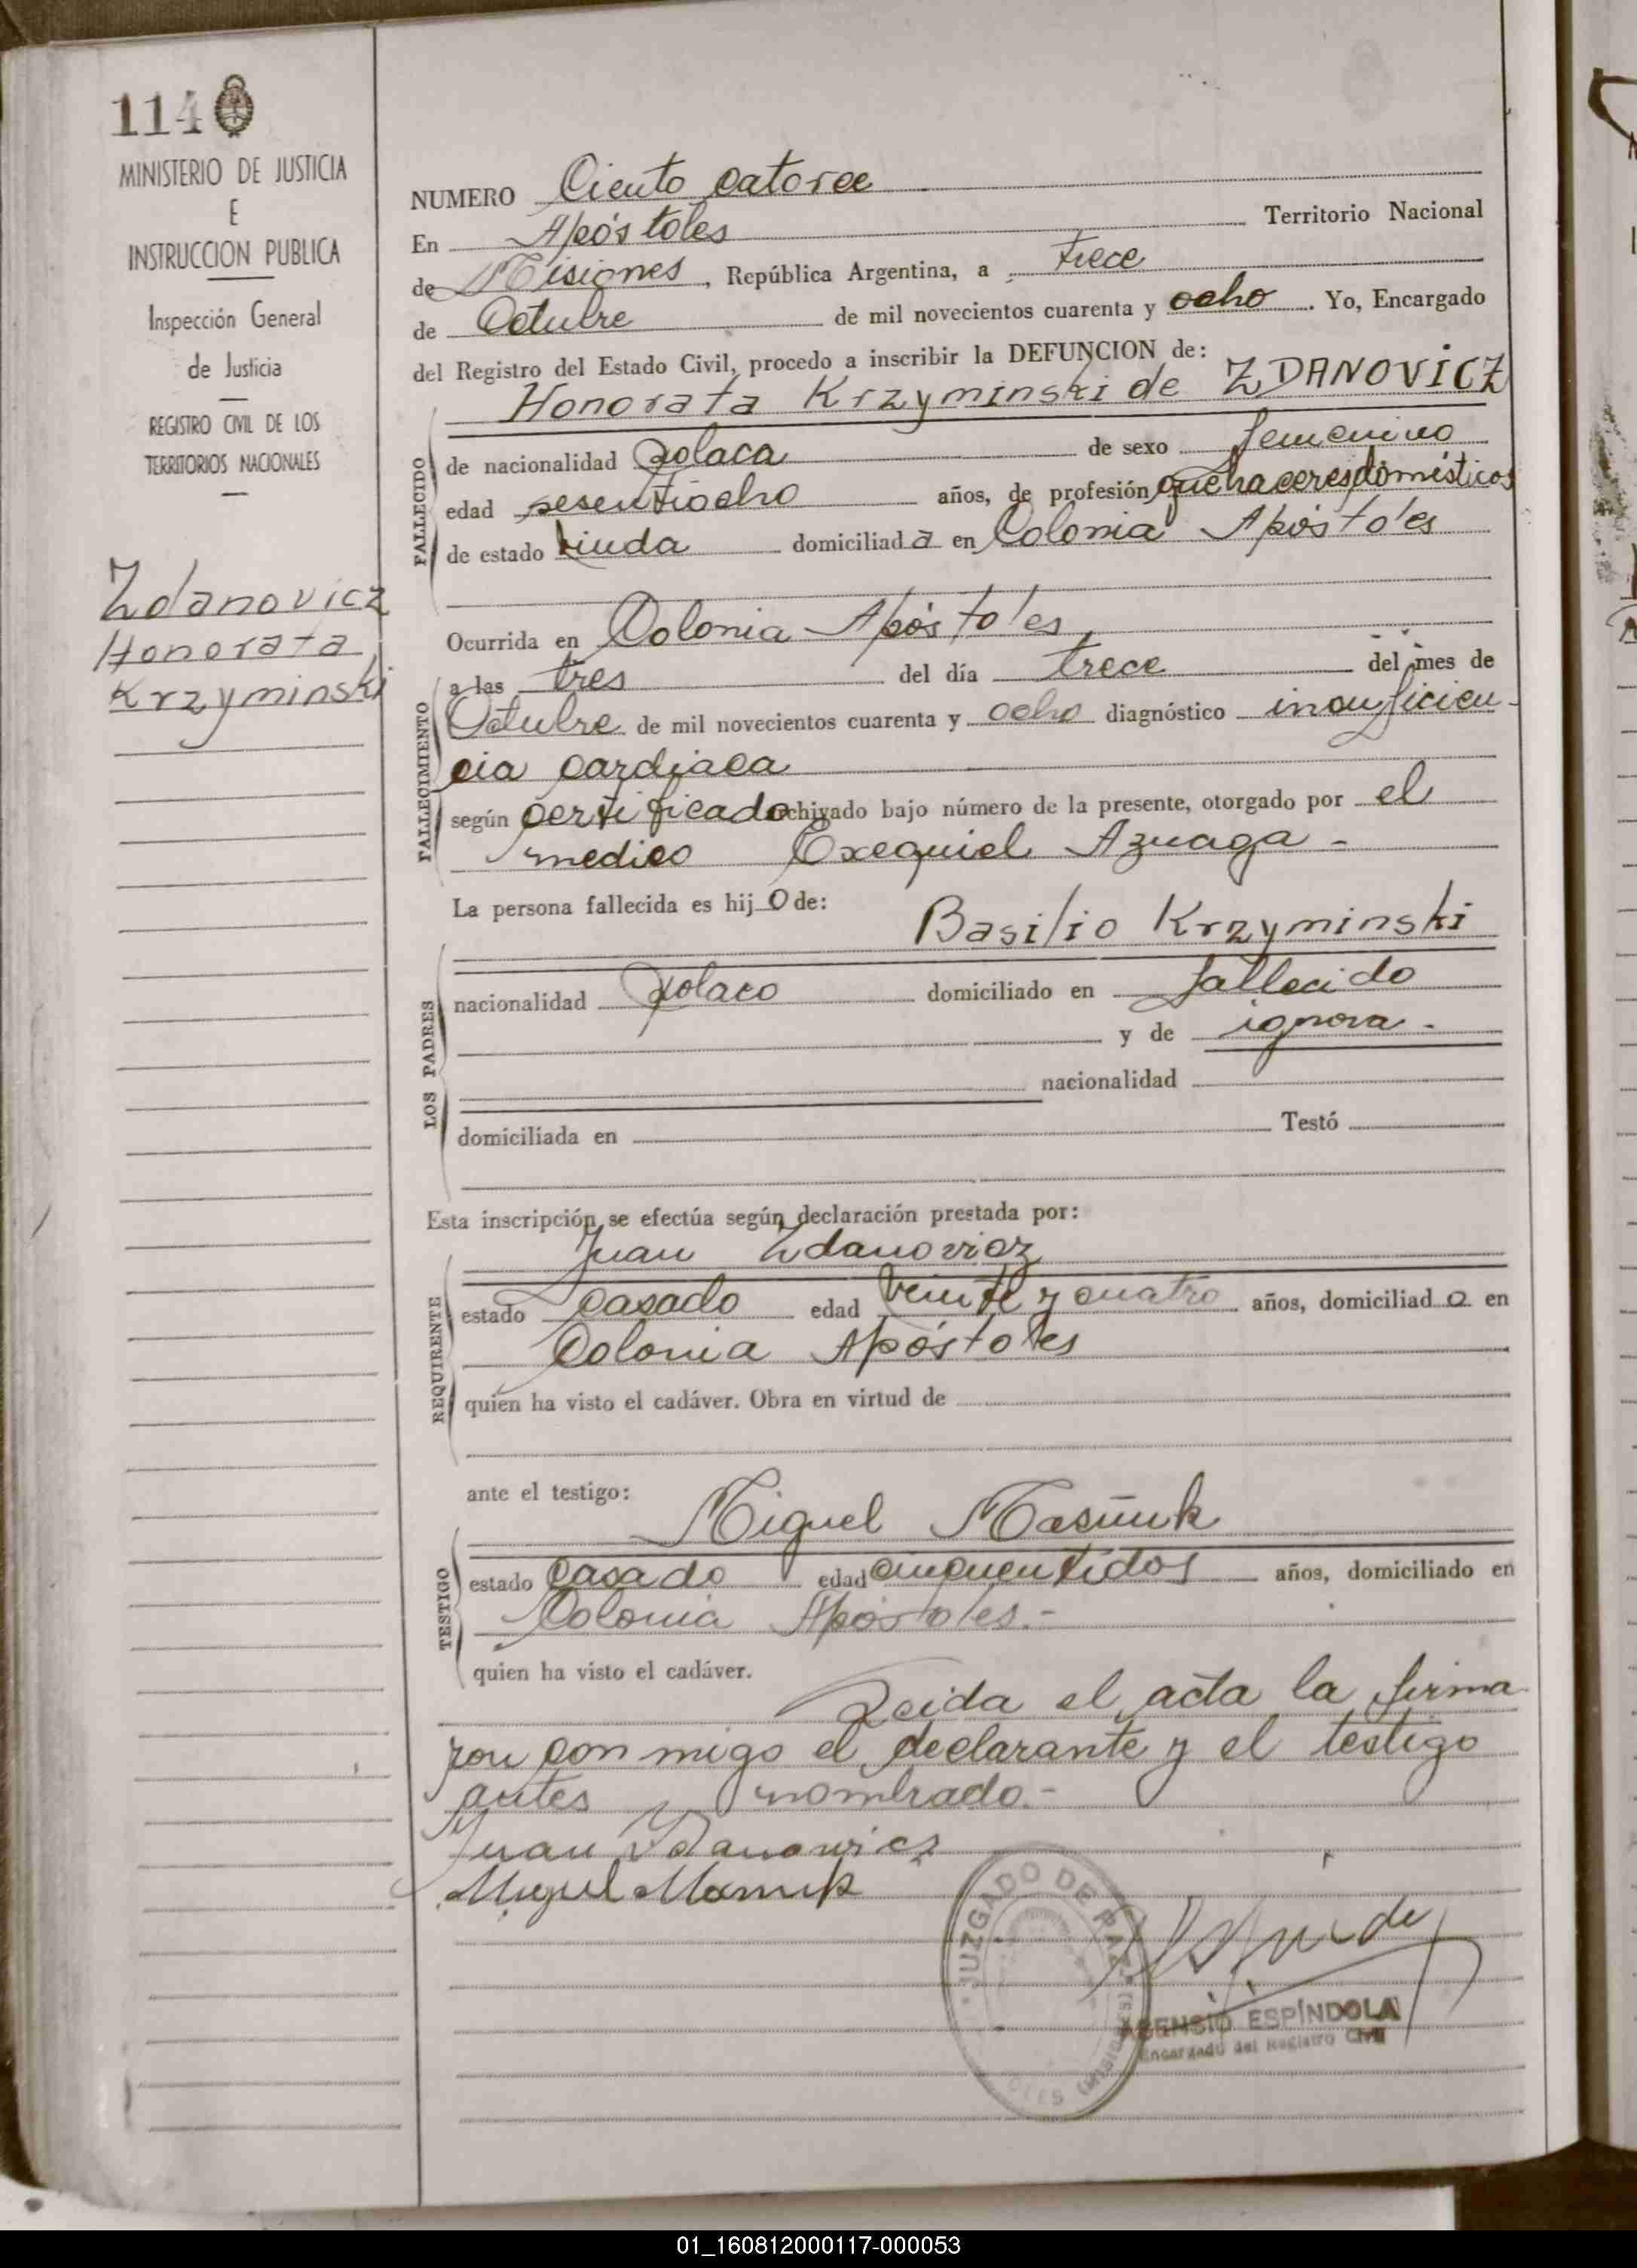 114
MINISTERIO DE JUSTICIA
E
INSTRUCCION PUBLICA
Inspección General
de Justicia
REGISTRO CIVIL DE LOS
TERRITORIOS NACIONALES
Zdanovicz
Honorata
Krzyminski
NUMERO Ciento catorce
En Apóstoles Territorio Nacional
de Misiones, República Argentina, a trece
de Octubre de mil novecientos cuarenta y ocho. Yo, Encargado
del Registro del Estado Civil, procedo a inscribir la DEFUNCION de:
Honorata Krzyminski de ZDANOVICZ
FALLECIDO
de nacionalidad polaca de sexo femenino
edad sesentiocho años, de profesión quehaceres domésticos
de estado viuda domiciliada en Colonia Apóstoles
Ocurrida en Colonia Apóstoles,
FALLECIMIENTO
a las tres del día trece del mes de
Octubre de mil novecientos cuarenta y ocho diagnóstico insuficien-
cia cardiaca
según certificado archivado bajo número de la presente, otorgado por el
medico Exequiel Azuaga -
La persona fallecida es hijo de:
Basilio Krzyminski
LOS PADRES
nacionalidad polaco domiciliado en fallecido
y de ignora -
nacionalidad
domiciliada en Testó
Esta inscripción se efectúa según declaración prestada por:
Juan Zdanovicz
REQUIRENTE
estado casado edad veinte y cuatro años, domiciliado en
Colonia Apóstoles
quien ha visto el cadáver. Obra en virtud de
ante el testigo:
Miguel
TESTIGO
estado casado edad cincuentidos años, domiciliado en
Colonia Apóstoles.-
quien ha visto el cadáver.
Leida el acta la firma
ron conmigo el declarante y el testigo
antes nombrado.-
Juan Zdanowicz
Miguel
JUZGADO DE PAZ
(MISIONES)
ASENSIO ESPÍNDOLA
Encargado del Registro Civil
01_160812000117-000053